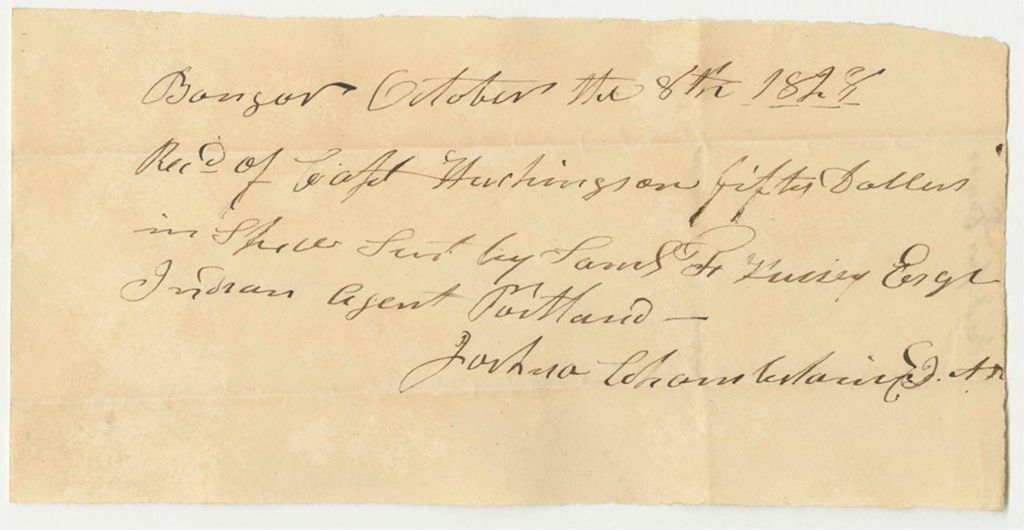 Bangor October the 8th 182
Rec'd of Capt Huchingson fifty Dollars
in Specie Sent by Saml F Hussey Esqr
Indian Agent Portland —
Joshua Chamberlain